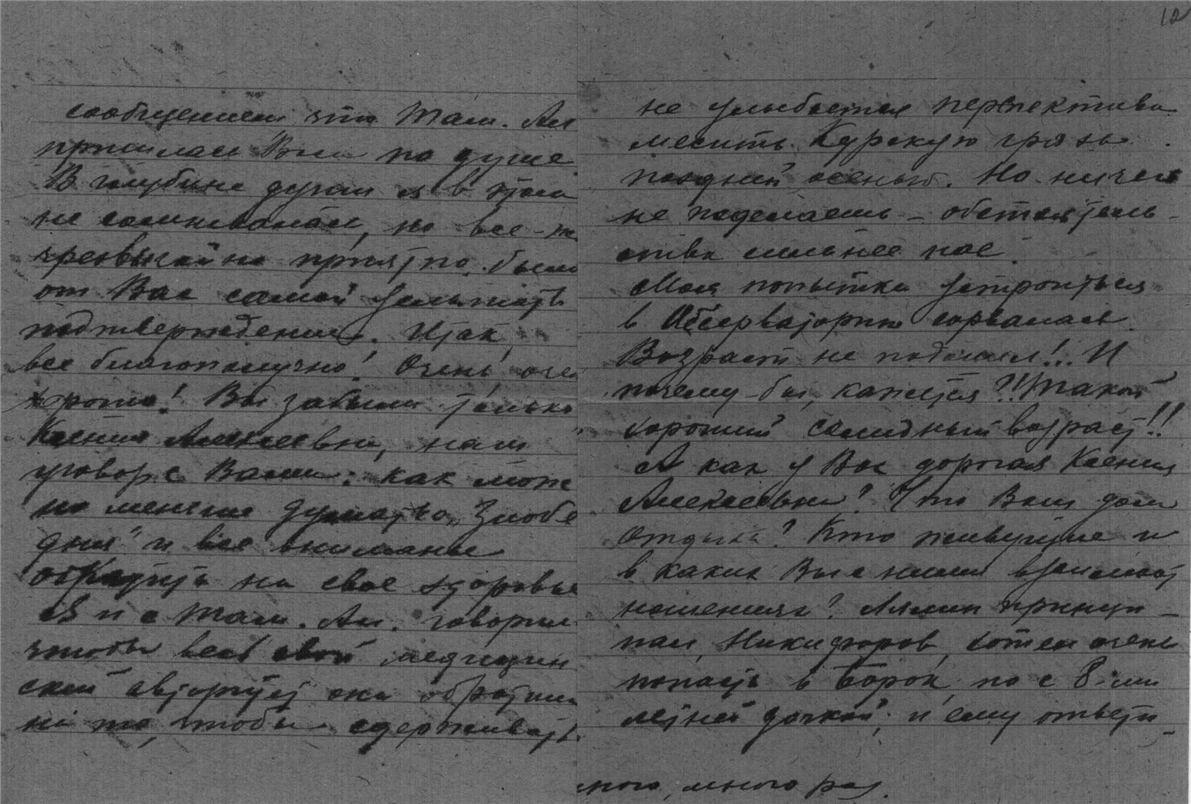 сообщением что Там. Ан
пришлась Вам по душе
В глубине души я в этом
не сомневалась, но все-ж
чрезвычайно приятно было
от Вас самой услышать
подтверждение. Итак,
все благополучно! Очень оче
хорошо! Вы забыли только
Ксения Алексеевна, наш
уговор с Вами: как мож
но меньше думать о „злобе
дня" и все внимание
обратить на свое здоровье
Я и с Там. Ан. говорил
чтобы весь свой медицин
ский авторитет она обратила
на то, чтобы сдерживать
12
не улыбается перспектива
месить Курскую грязь
поздней осенью. Но ничего
не поделаешь – обстоятель-
ства сильнее нас.
Моя попытка устроиться
в Обсерваторию сорвалась.
Возраст не подошел!.. И
почему бы, кажется?!! Такой
хороший солидный возраст!!
А как у Вас дорогая Ксения
Алексеевна? Что Ваш дом
отдыха? Кто живущие и
в каких Вы с ними взаимоот
ношениях? Лямин
Никифоров, хотел очень
попасть в Борок, но с 8-ми
летней дочкой, и ему ответи-
много, много раз.